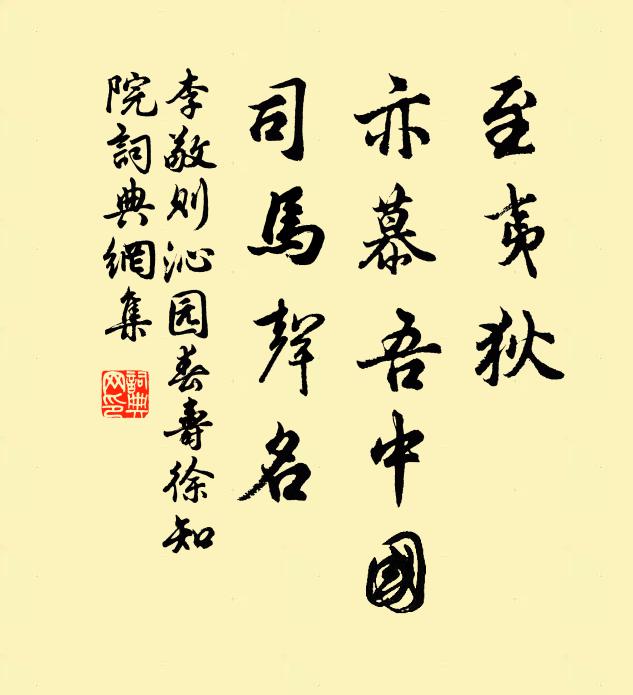 至夷狄
亦慕吾中國
司馬聲名
李敬则沁园春壽徐知
院詞典網集
詞典
网印